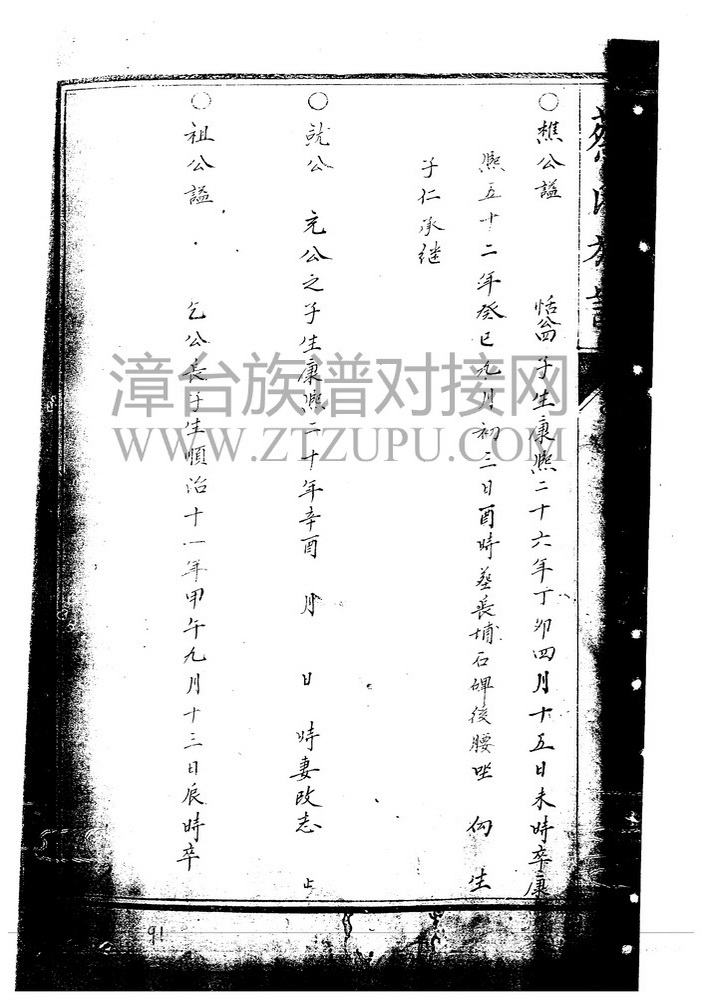 ○樵公諡 恬翁四子生康熙二十六年丁卯四月十五日未時卒康
熙五十二年癸巳九月初三日酉時葬長埔石碑後腰坐 向 生
子仁承继
○就公 充公之子生康熙二十年辛酉 月 日 時妻改志 止
○祖公諡 乞公長子生順治十一年甲午九月十三日辰時卒
漳台族谱对接网
WWW.ZTZUPU.COM
91